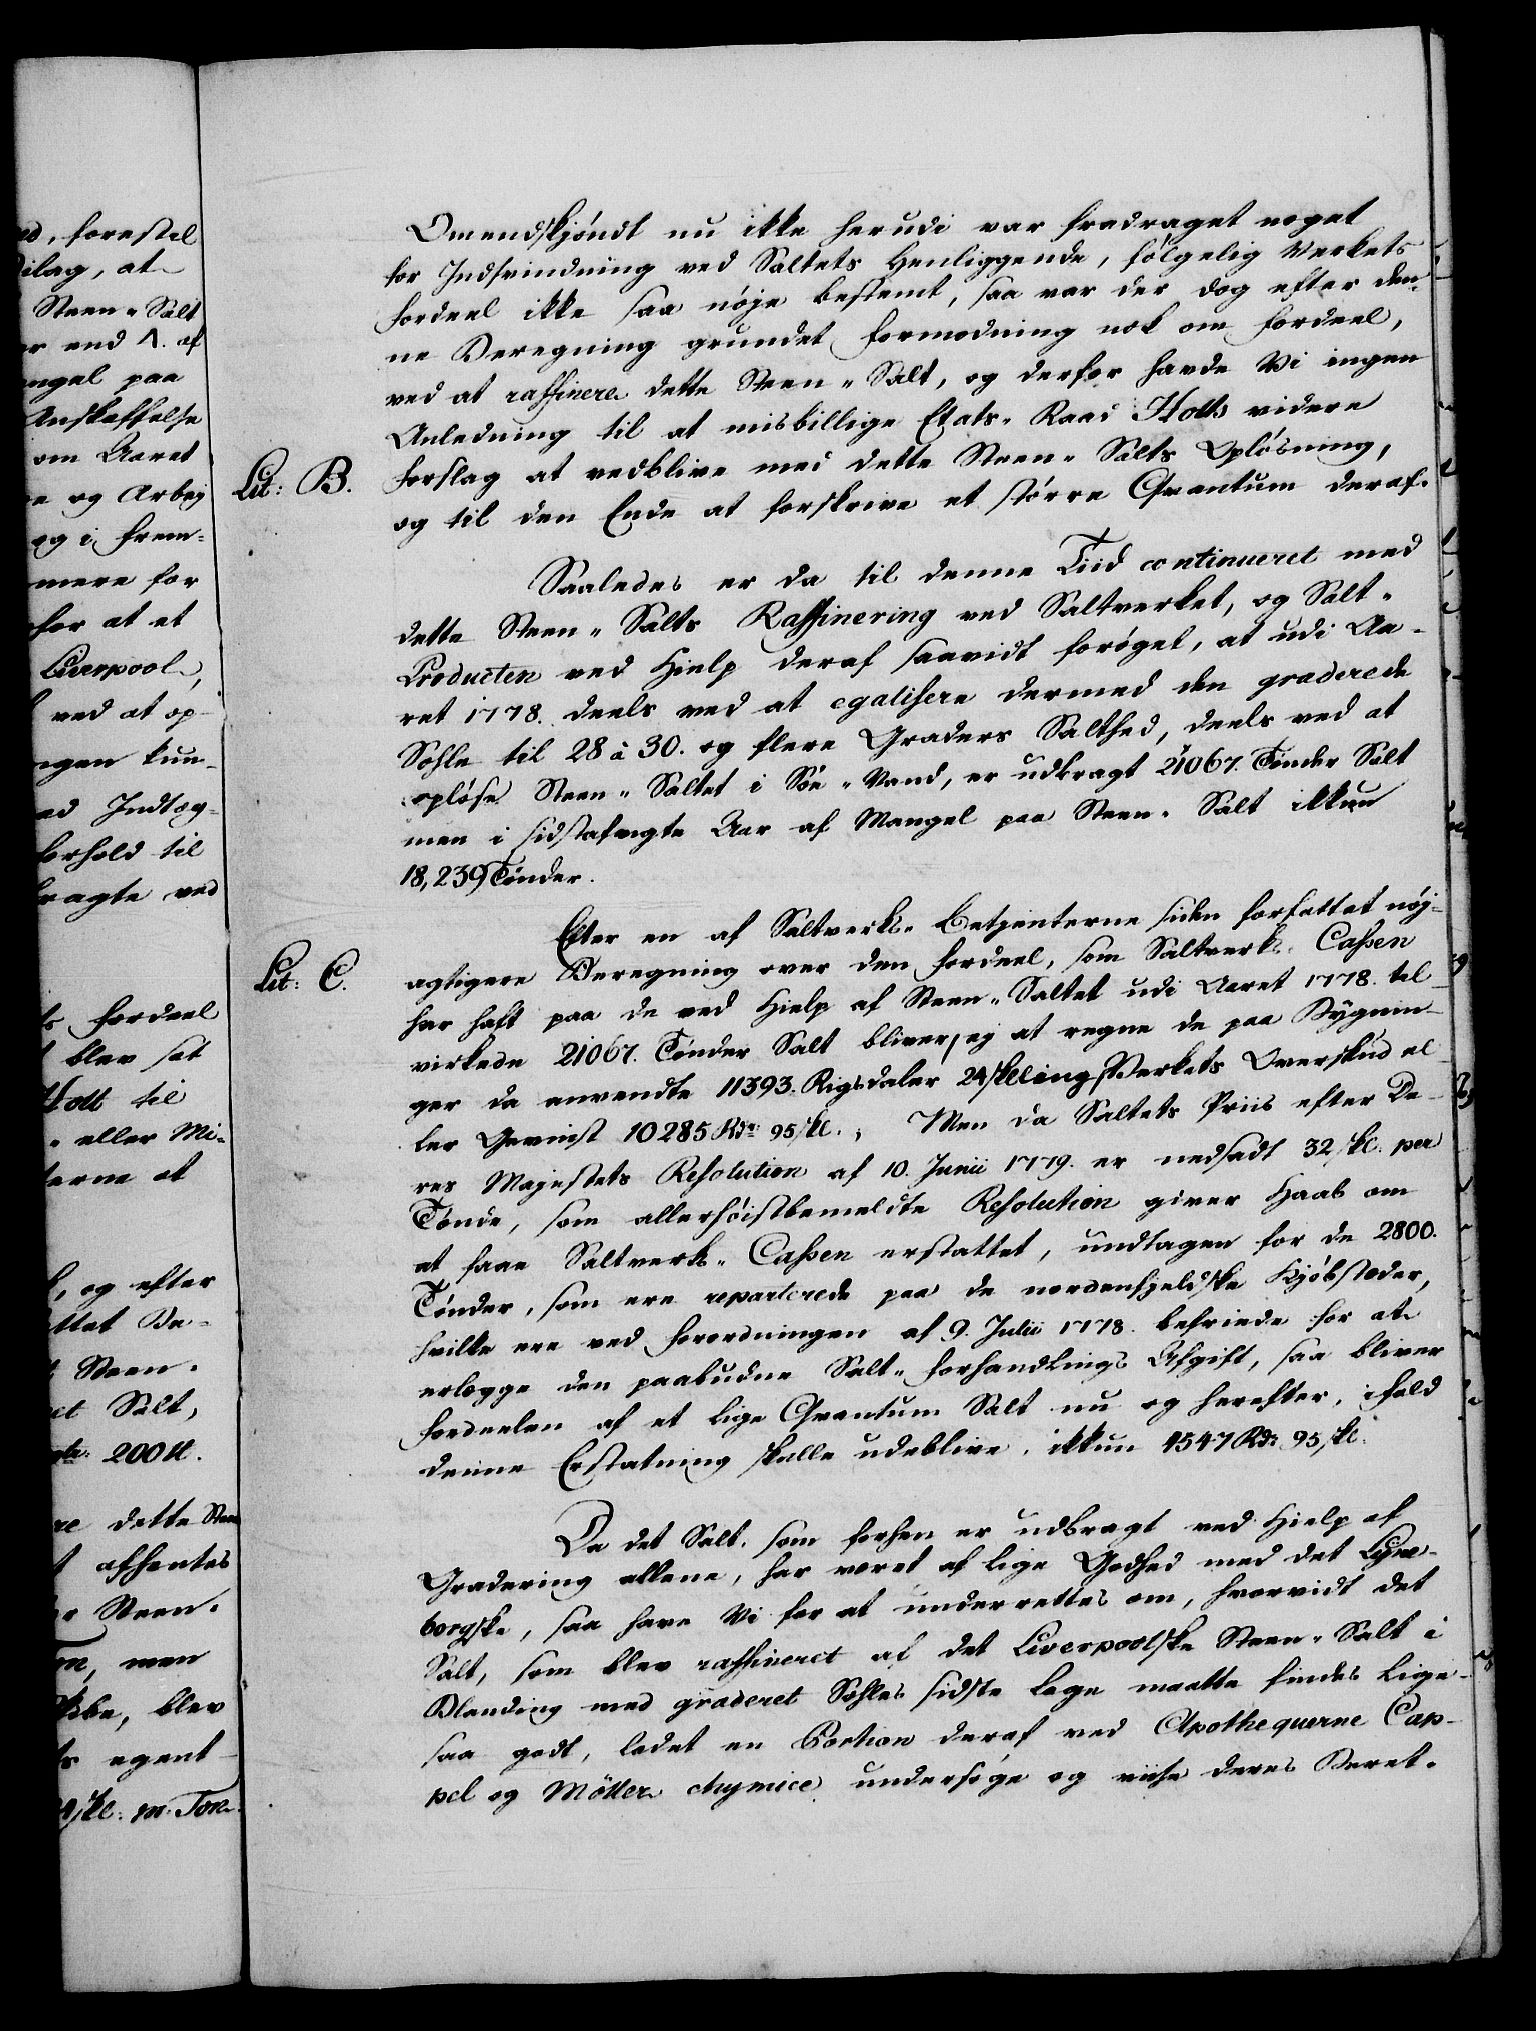 ed, forestil
ilag, at
Steen-Salt
er end A. af
angel paa
Anskaffelse
om Aaret
e og Arbej
og i frem-
mere for
for at et
Liverpool,
ved at op-
ngen kun-
ed Indtæg-
forhold til
bragte ved
ts fordeel
blev sat
Hott til
eller Mi-
terne at
, og efter
ttet Be-
Steen-
et Salt,
200 tt.
re dette Steen
t afhentes
er Steen-
en, men
blev
ts egent-
skl: m. Ton.
Omendskjöndt nu ikke herudi var fradraget noget
for Indsvindning ved Saltets Henliggende, fölgelig Verkets
fordeel ikke saa nöje bestemt, saa var der dog efter den-
ne Beregning grundet formodning nok om fordeel,
ved at raffinere dette Steen-Salt, og derfor havde Vi ingen
Anledning til at misbillige Etats-Raad Hotts videre
Lit: B. forslag at vedblive med dette Steen-Salts Oplösning,
og til den Ende at forskrive et större Qvantum deraf.
Saaledes er da til denne Tiid continueret med
dette Steen-Salts Raffinering ved Saltverket, og Salt-
Producten ved Hielp deraf saavidt foröget, at udi Aa-
ret 1778. deels ved at egalisere dermed den graderede
Sohle til 28 à 30. og flere Graders Salthed, deels ved at
oplöse Steen-Saltet i Söe-Vand, er udbragt 21067. Tönder Salt
men i sidstafvigte Aar af Mangel paa Steen-Salt ikkun
18,239 Tönder.
Efter en af Saltverks-Betjenterne siden forfattet nöj-
Lit: C. agtigere Beregning over den fordeel, som Saltverks-Cassen
har haft paa de ved Hielp af Steen-Saltet udi Aaret 1778. til-
virkede 21067. Tönder Salt bliver, ej at regne de paa Bygnin-
ger da anvendte 11393. Rigsdaler 24 skilling, Verkets Overskud el-
ler Gevinst 10285 Rdr 95 skl.; Men da Saltets Priis efter De-
res Majestets Resolution af 10. Junii 1779. er nedsadt 32 skl. per
Tönde, som allerhöistbemeldte Resolution giver Haab om
at faae Saltverks-Cassen erstattet, undtagen for de 2800.
Tönder, som ere reparterede paa de nordenfjeldske Kjöbstæder,
hvilke ere ved forordningen af 9. Julii 1778. befriede for at
erlægge den paabudne Salt-forhandlings Afgift, saa bliver
fordeelen af et lige Qvantum Salt nu og herefter, ifald
denne Erstatning skulle udeblive, ikkun 4547 Rdr 95 skl.
Da det Salt, som forhen er udbragt ved Hielp af
Gradering allene, har været af lige Godhed med det Lyne-
borgske, saa have Vi for at underrettes om, hvorvidt det
Salt, som blev raffineret af det Liverpoolske Steen-Salt i
Blanding med graderet Sohles sidste Lage maatte findes lige-
saa godt, ladet en Portion deraf ved Apothequerne Cap-
pel og Möller chymice undersöge og viise deres Beret-